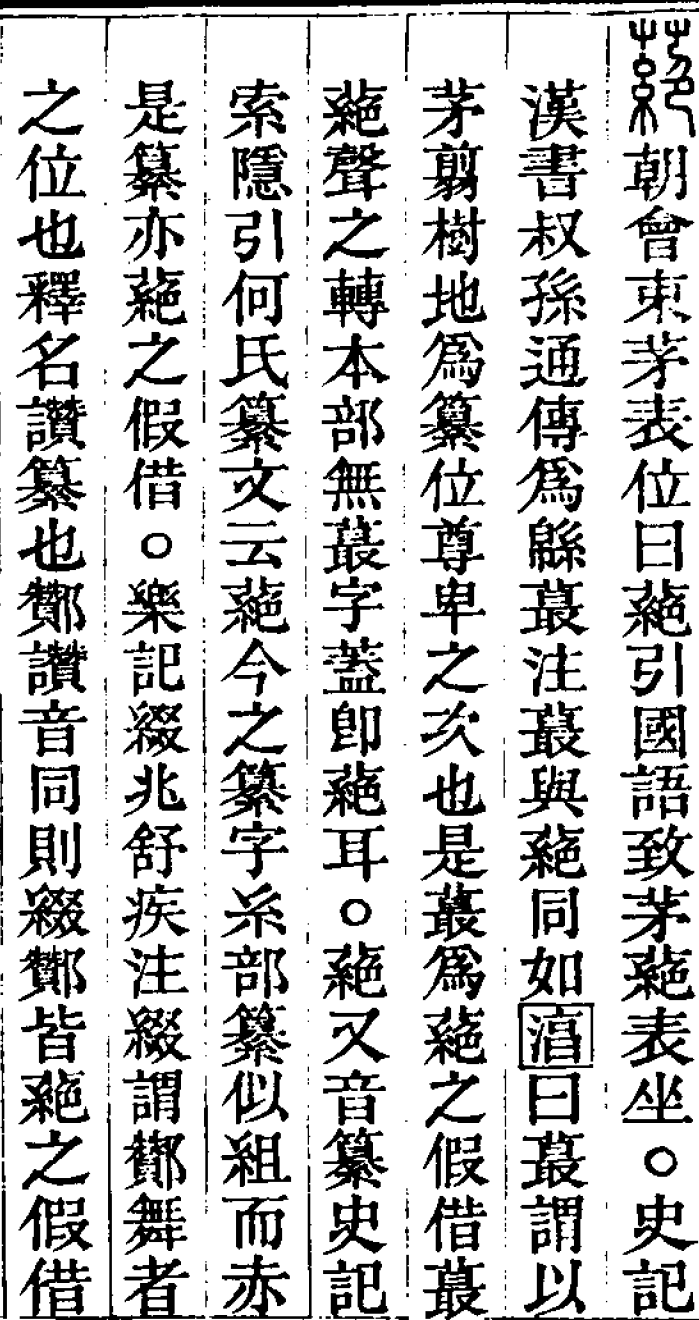 蕝朝會束茅表位曰蕝引國語致茅蕝表坐○史記
漢書叔孫通傳爲緜蕞注蕞與蕝同如湻曰蕞謂以
茅翦樹地爲纂位尊卑之次也是蕞爲蕝之假借蕞
蕝聲之轉本部無蕞字葢卽蕝耳○蕝又音纂史記
索隱引何氏纂文云蕝今之纂字糸部纂似組而赤
是纂亦蕝之假借○樂記綴兆舒疾注綴謂酇舞者
之位也釋名讚纂也酇讚音同則綴酇皆蕝之假借